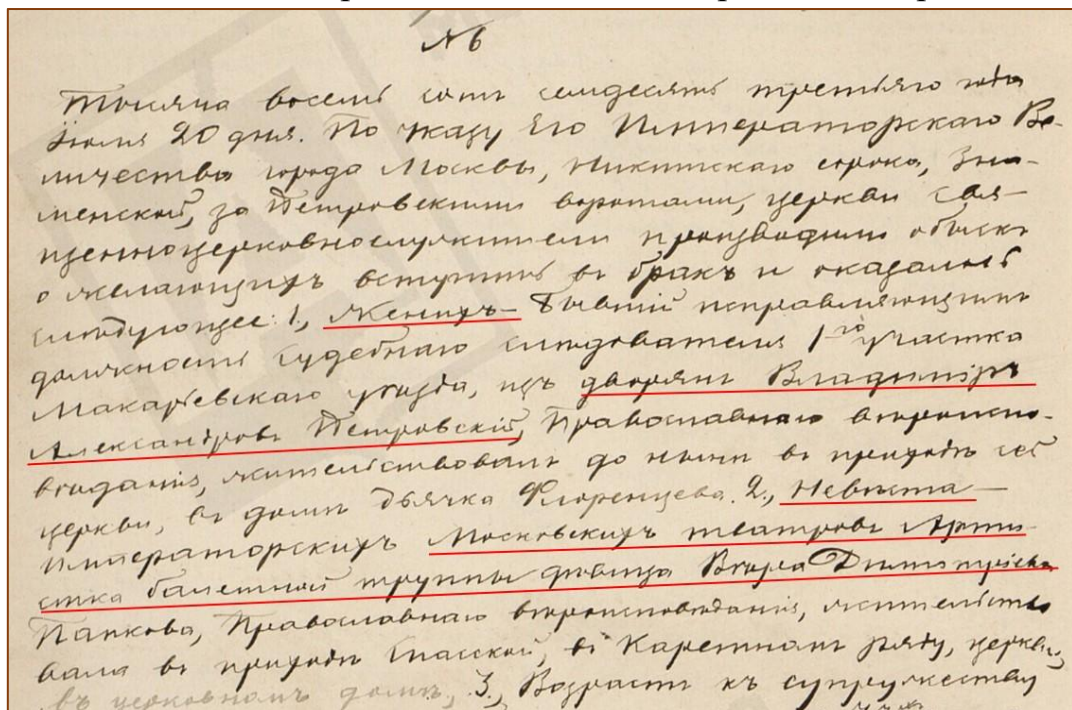 № 6
Тысяча восемь сотъ семдесятъ третьяго года
Июля 20 дня. По указу Его Императорскаго Ве-
личества города Москвы, Никитскаго сорока, Зна-
менской, за Петровскими воротами, церкви свя-
щенноцерковнослужители производили обыскъ
о желающихъ вступить въ бракъ и оказалось
слѣдующее: 1, Женихъ – Бывшій исправляющимъ
должность Судебнаго слѣдователя 1го участка
Макарьевскаго уѣзда, изъ дворянъ Владиміръ
Александровъ Петровскій, Православнаго вѣроиспо-
вѣданія, жительствовалъ до нынѣ въ приходѣ сей
церкви, въ домѣ дьячка Флоренцева. 2., Невѣста –
Императорскихъ Московскихъ театровъ Арти-
стка балетной труппы дѣвица Вѣра Димитріева
Папкова, Православнаго вѣроисповѣданія, жительство
вала въ приходѣ Спасской, въ Каретномъ ряду, церкви,
въ церковномъ домѣ, 3, Возрастъ къ супружеству